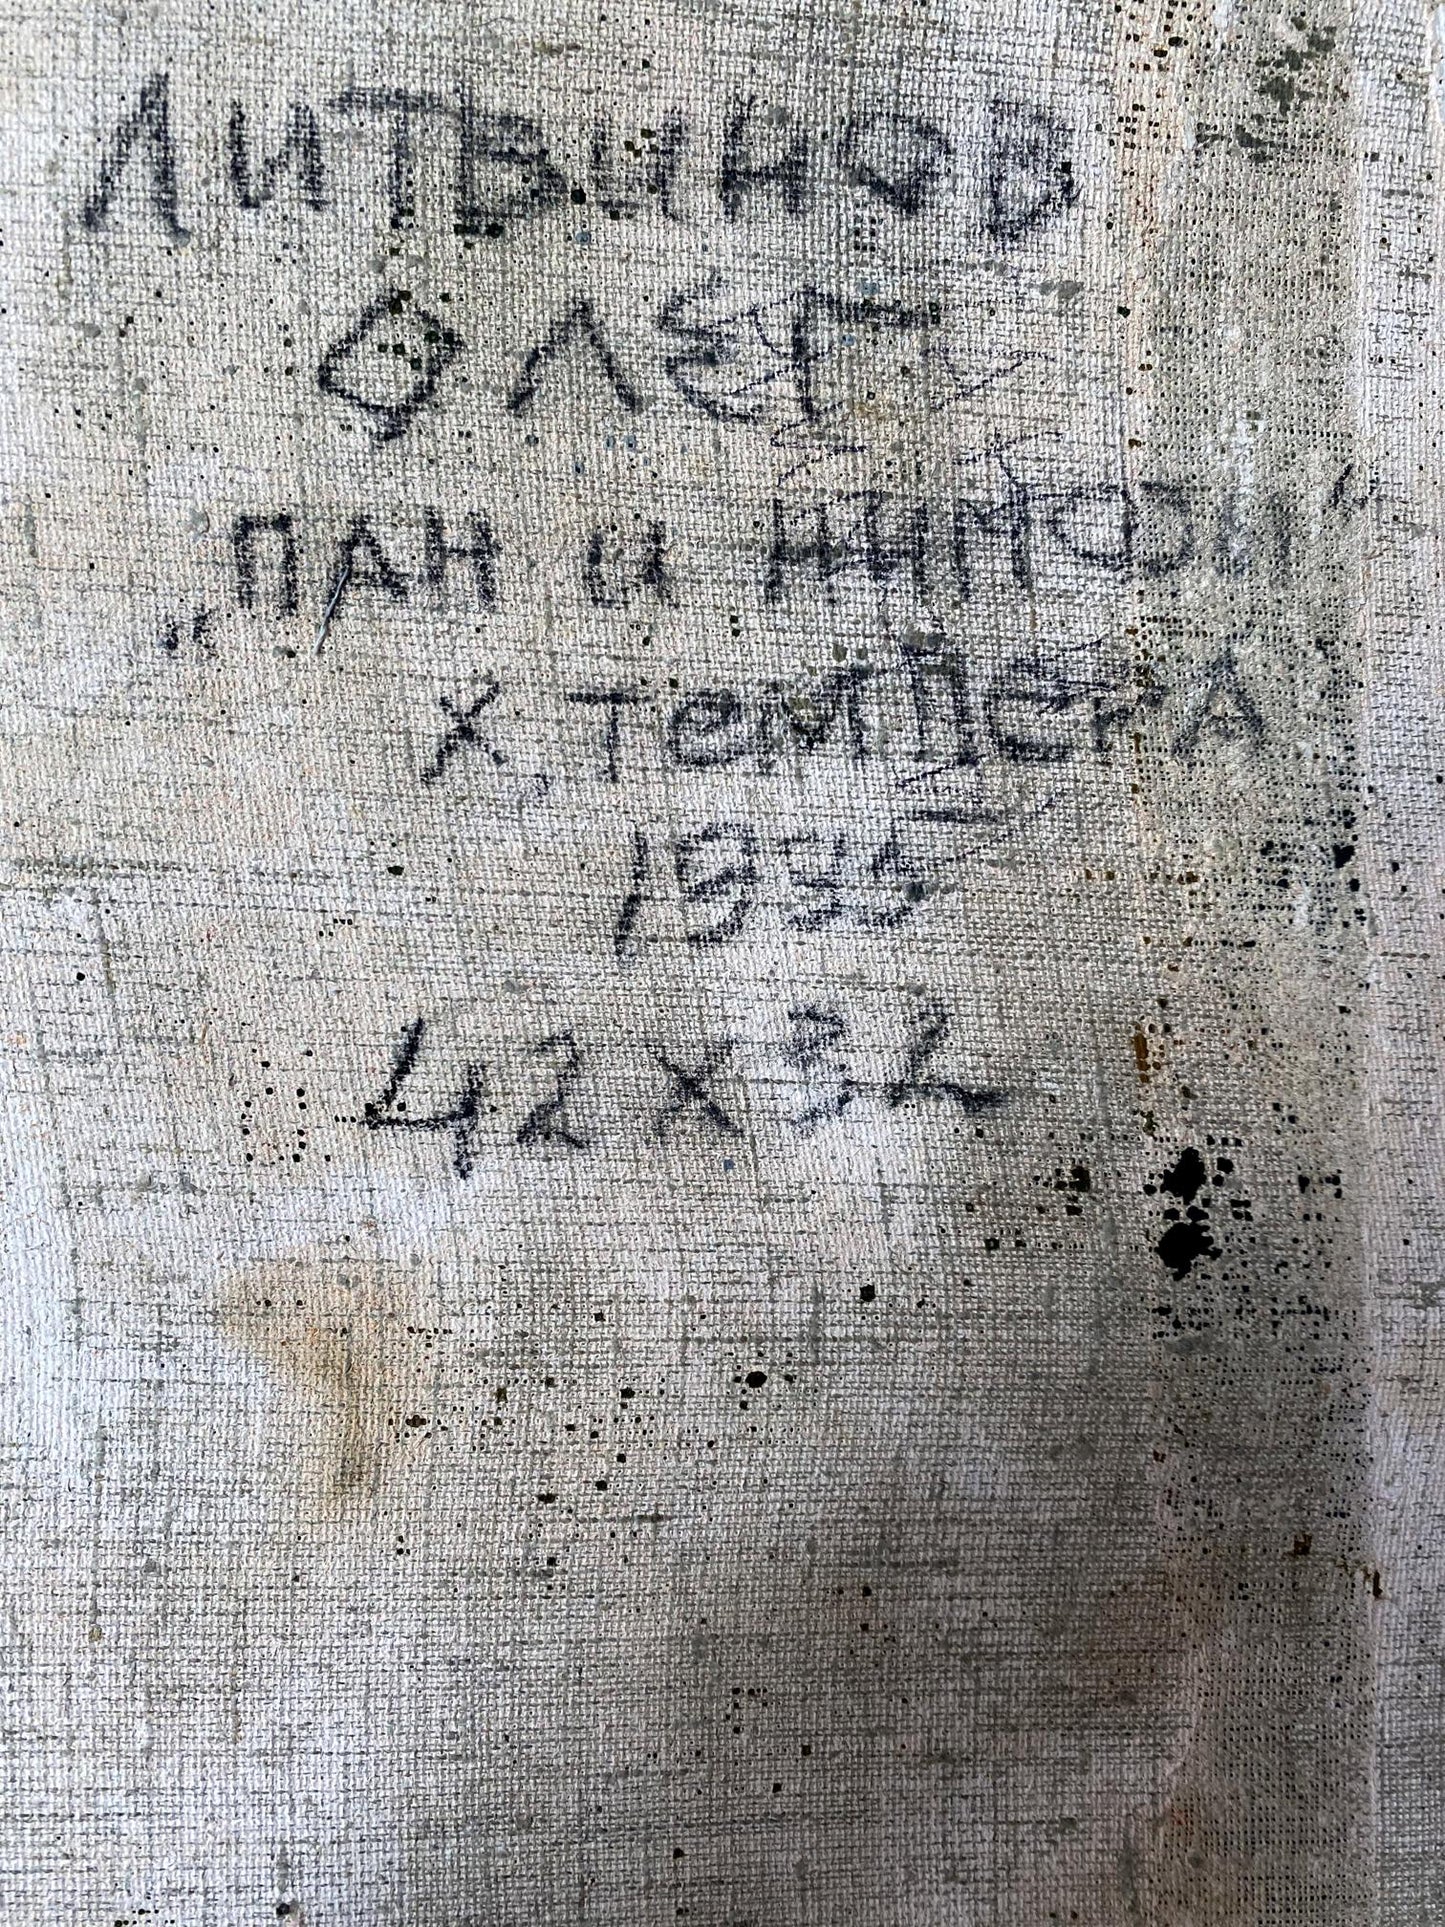 ЛИТВИНОВ
ОЛЕГ
„ПАН И НИМФЫ“
Х, ТЕМПЕРА
1935
42 X 32